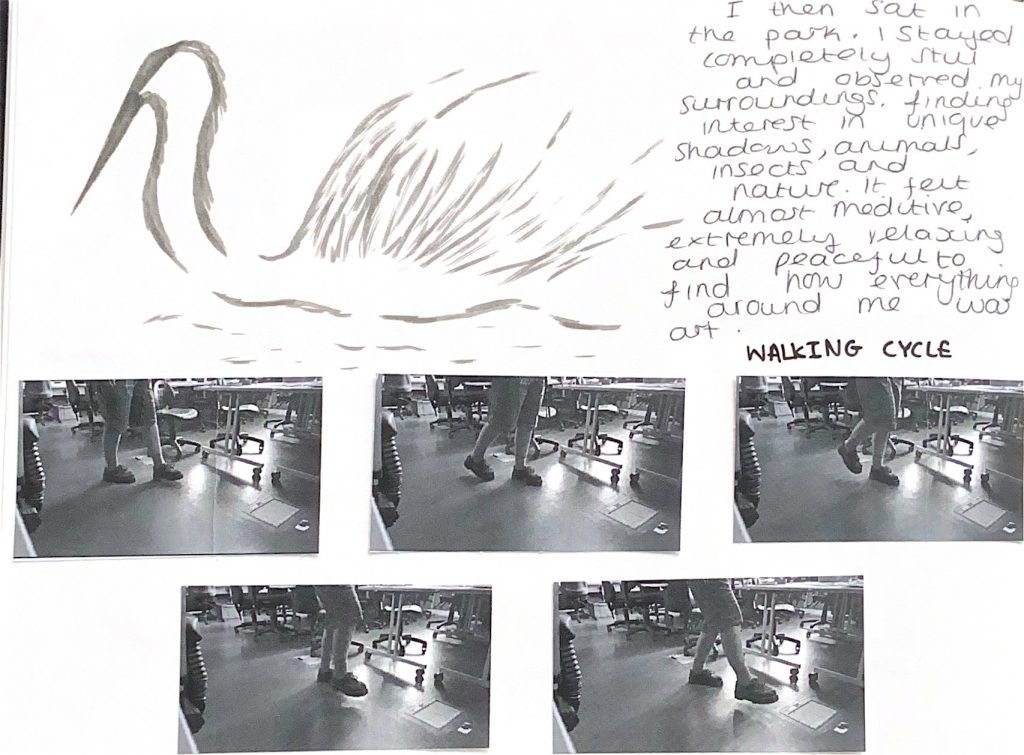 I then sat in
the park. I stayed
completely still
and observed my
surroundings. finding
interest in unique
shadows, animals,
insects and
nature. It felt
almost meditive,
extremely relaxing
and peaceful to
find how everything
around me was
art.
WALKING CYCLE